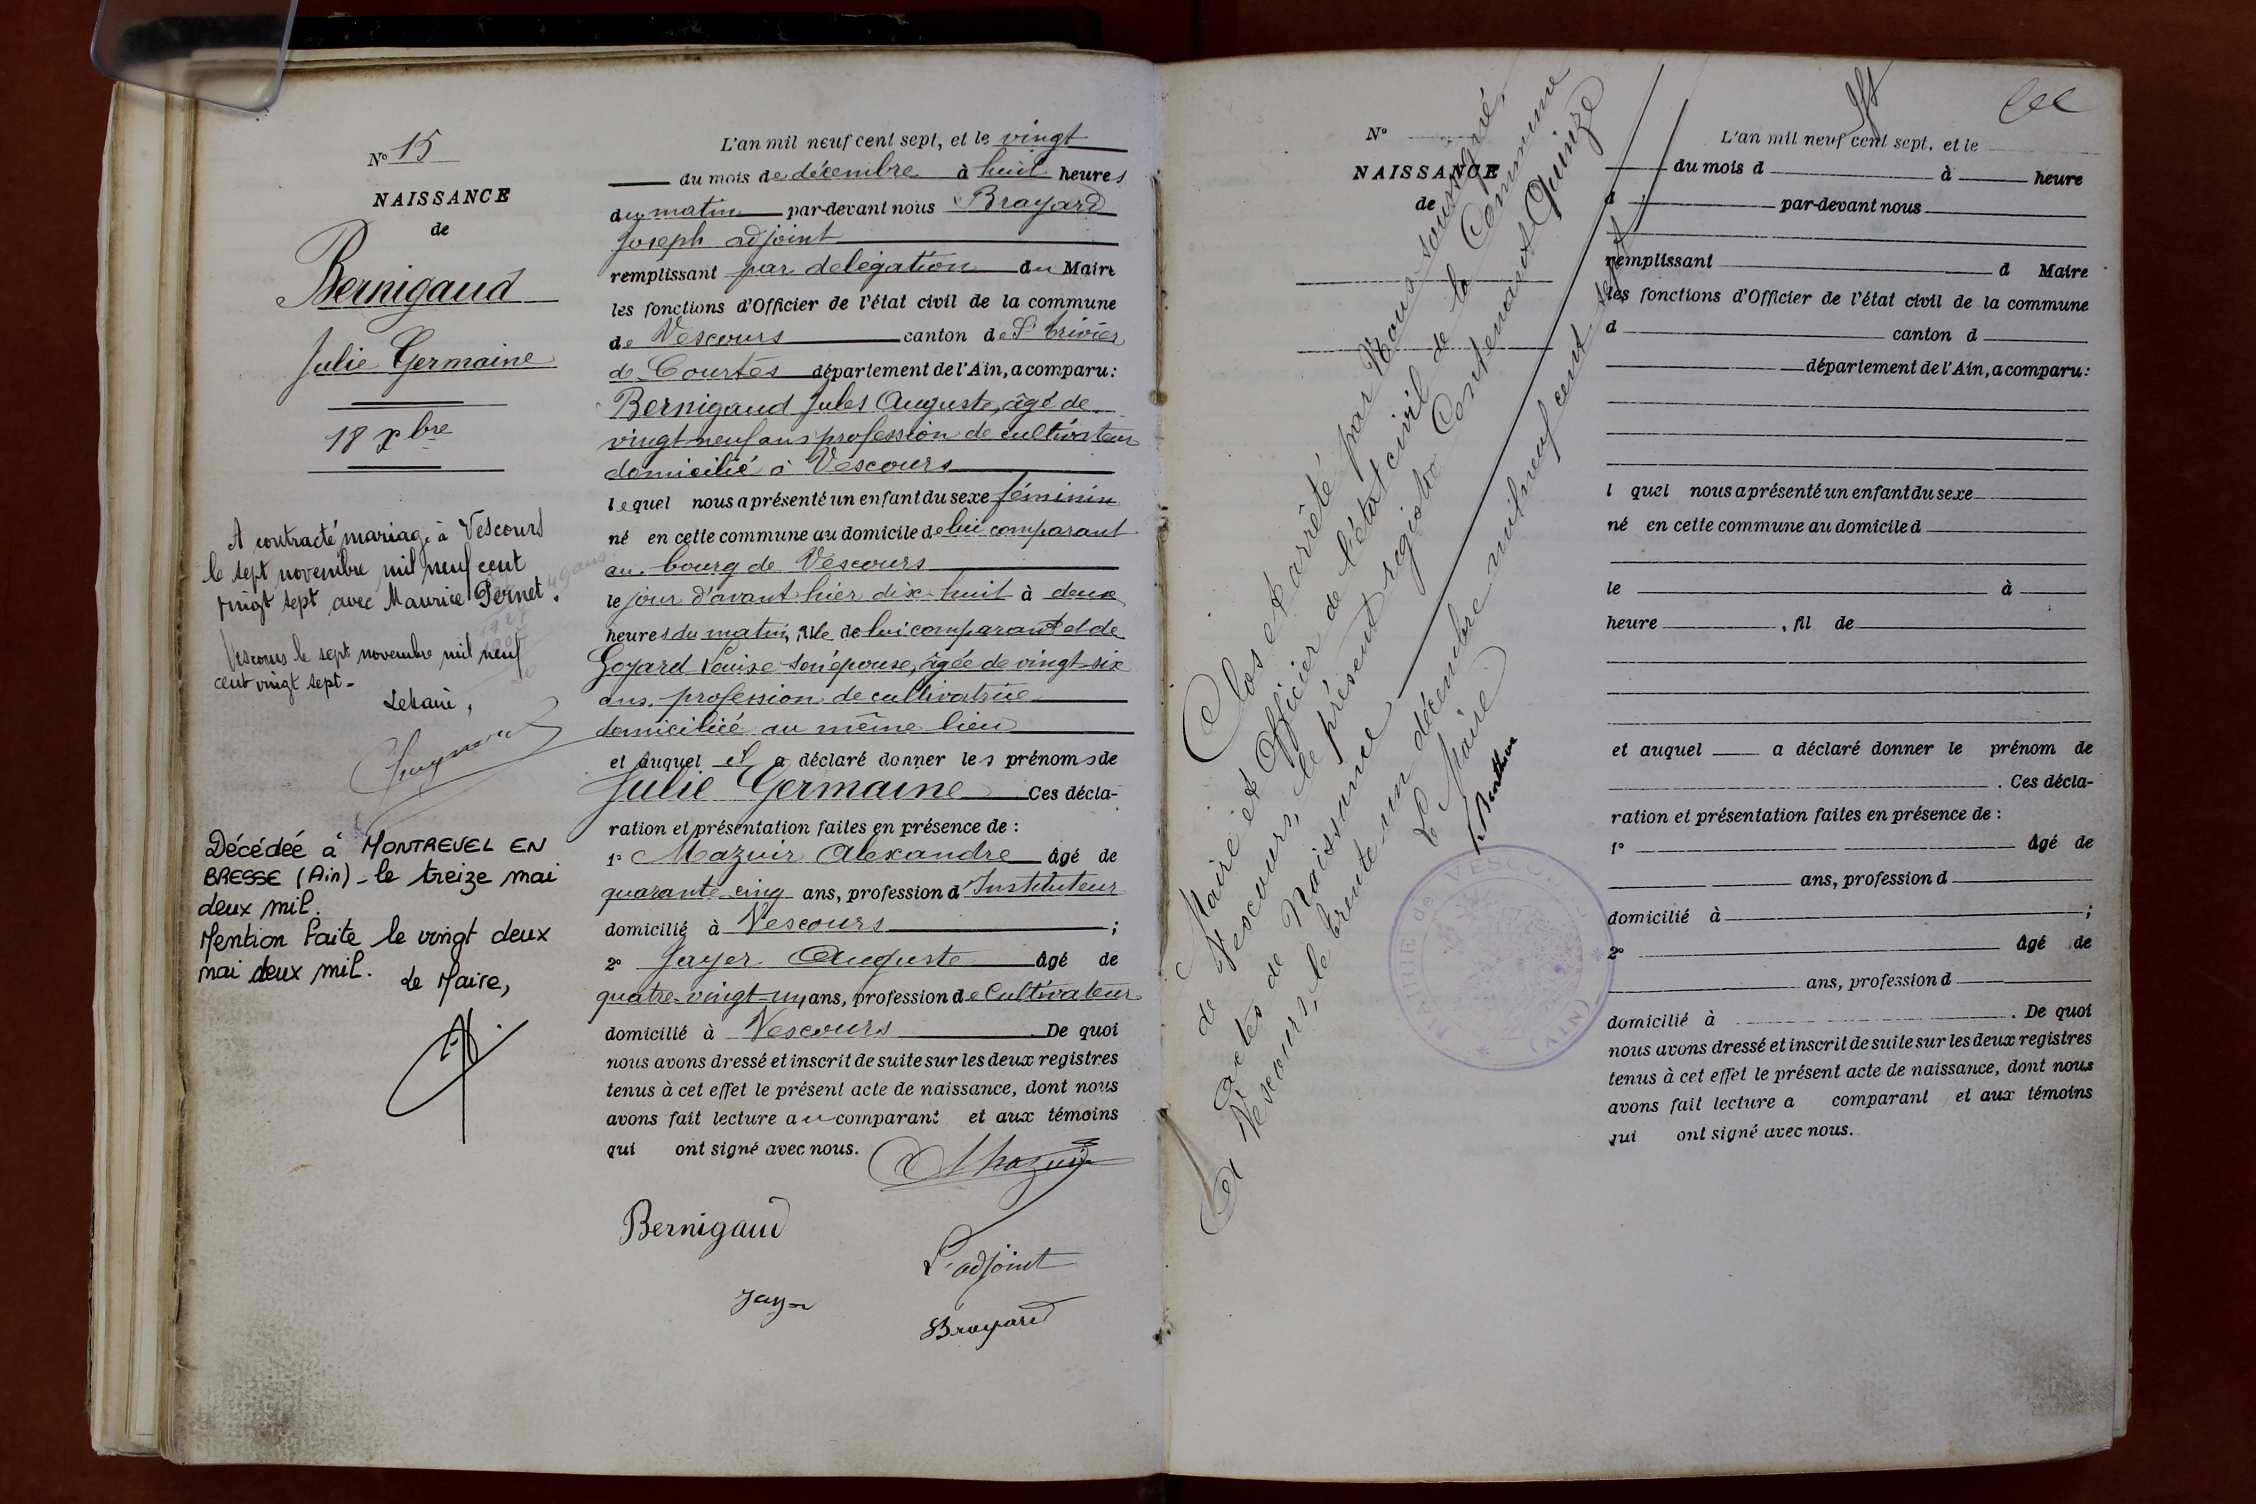 N° 15
NAISSANCE
de
Bernigaud
Julie Germaine
18 xbre
A contracté mariage à Vescours
le sept novembre mil neuf cent
vingt sept avec Maurice Pernet.
Vescours le sept novembre mil neuf
cent vingt sept-
Le Maire,
Décédée à MONTREVEL EN
BRESSE (Ain) - le treize mai
deux mil.
Mention faite le vingt deux
mai deux mil.
Le Maire,
L'an mil neuf cent sept, et le vingt
du mois de décembre à huit heures
du matin par-devant nous Brayard
Joseph adjoint
remplissant par délégation du Maire
les fonctions d'Officier de l'état civil de la commune
de Vescours canton de St Trivier
de Courtes département de l'Ain, a comparu:
Bernigaud Jules Auguste, âgé de
vingt neuf ans profession de cultivateur
domicilié à Vescours
lequel nous a présenté un enfant du sexe féminin
né en cette commune au domicile de lui comparant
au bourg de Vescours
le jour d'avant hier dix-huit à deux
heures du matin, fille de lui comparant et de
Goyard Louise son épouse, âgée de vingt-six
ans, profession de cultivatrice
domiciliée au même lieu
et auquel il a déclaré donner les prénoms de
Julie Germaine Ces décla-
ration et présentation faites en présence de :
1° Mazuir Alexandre âgé de
quarante cinq ans, profession d'Instituteur
domicilié à Vescours ;
2° Jayer Auguste âgé de
quatre-vingt-un ans, profession de Cultivateur
domicilié à Vescours De quoi
nous avons dressé et inscrit de suite sur les deux registres
tenus à cet effet le présent acte de naissance, dont nous
avons fait lecture au comparant et aux témoins
qui ont signé avec nous.
AMazuir
Bernigaud
L'adjoint
Jayer
Brayard
N°
NAISSANCE
de
Clos et arrêté par Nous soussigné,
Maire et Officier de l'état civil de la Commune
de Vescours, le présent registre Contenant Quinze
actes de Naissance
A Vescours, le trente-un décembre mil neuf cent sept
Le Maire
MAIRIE de VESCOURS
* (AIN) *
L'an mil neuf cent sept, et le
du mois d à heure
d par-devant nous
remplissant d Maire
les fonctions d'Officier de l'état civil de la commune
d canton d
département de l'Ain, a comparu:
l quel nous a présenté un enfant du sexe
né en cette commune au domicile d
le à
heure , fil de
et auquel a déclaré donner le prénom de
. Ces décla-
ration et présentation faites en présence de :
1° âgé de
ans, profession d
domicilié à ;
2° âgé de
ans, profession d
domicilié à . De quoi
nous avons dressé et inscrit de suite sur les deux registres
tenus à cet effet le présent acte de naissance, dont nous
avons fait lecture a comparant et aux témoins
qui ont signé avec nous.